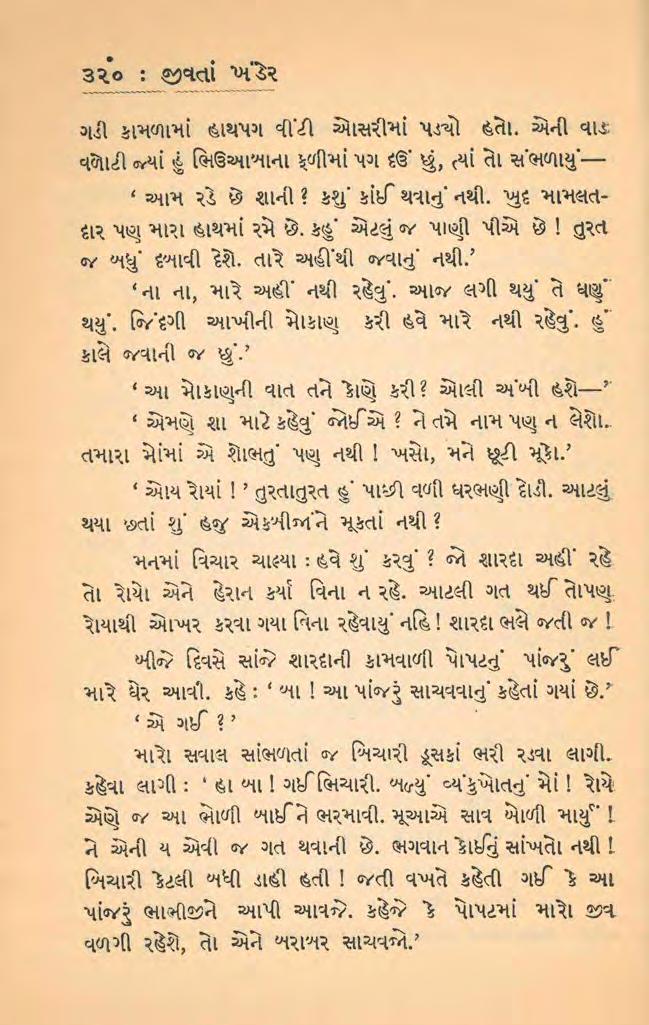 ૩૨૦ : જીવતાં ખંડેર
ગડી કામળામાં હાથપગ વીંટી ઓસરીમાં પડ્યો હતો. એની વાડ
વળોટી જ્યાં હું ભિઉઆખાના ફળીમાં પગ દઉં છું, ત્યાં તો સંભળાયું—
‘ આમ રડે છે શાની ? કશું કાંઈ થવાનું નથી. ખુદ મામલત-
દાર પણ મારા હાથમાં રમે છે. કહું એટલું જ પાણી પીએ છે ! તુરત
જ બધું દબાવી દેશે. તારે અહીંથી જવાનું નથી.’
‘ના ના, મારે અહીં નથી રહેવું. આજ લગી થયું તે ઘણું
થયું. જિંદગી આખીની મોકાણ કરી હવે મારે નથી રહેવું. હું
કાલે જવાની જ છું.’
‘ આ મોકાણની વાત તને કોણે કરી? ઓલી અંબી હશે—’
‘ એમણે શા માટે કહેવું જોઈએ ? ને તમે નામ પણ ન લેશો.
તમારા મોંમાં એ શોભતું પણ નથી ! ખસો, મને છૂટી મૂકો.’
‘ ઓય રોયાં ! ’ તુરતાતુરત હું પાછી વળી ઘરભણી દોડી. આટલું
થયા છતાં શું હજુ એકબીજાંને મૂકતાં નથી ?
મનમાં વિચાર ચાલ્યા : હવે શું કરવું ? જો શારદા અહીં રહે
તો રોયો એને હેરાન કર્યા વિના ન રહે. આટલી ગત થઈ તોપણ
રોયાથી ઓખર કરવા ગયા વિના રહેવાયું નહિ! શારદા ભલે જતી જ !
બીજે દિવસે સાંજે શારદાની કામવાળી પોપટનું પાંજરું લઈ
મારે ઘેર આવી. કહે : ‘ બા ! આ પાંજરું સાચવવાનું કહેતાં ગયાં છે.’
‘ એ ગઈ ?’
મારો સવાલ સાંભળતાં જ બિચારી ડૂસકાં ભરી રડવા લાગી.
કહેવા લાગી : ‘ હા બા ! ગઈ ભિચારી. બળ્યું વ્યંકુખોતનું મોં ! રોયે
એણે જ આ ભોળી બાઈને ભરમાવી. મૂઆએ સાવ બોળી માર્યું !
ને એની ય એવી જ ગત થવાની છે. ભગવાન કોઈનું સાંખતો નથી !
બિચારી કેટલી બધી ડાહી હતી ! જતી વખતે કહેતી ગઈ કે આ
પાંજરું ભાભીજીને આપી આવજે. કહેજે કે પોપટમાં મારો જીવ
વળગી રહેશે, તો એને બરાબર સાચવજો.’